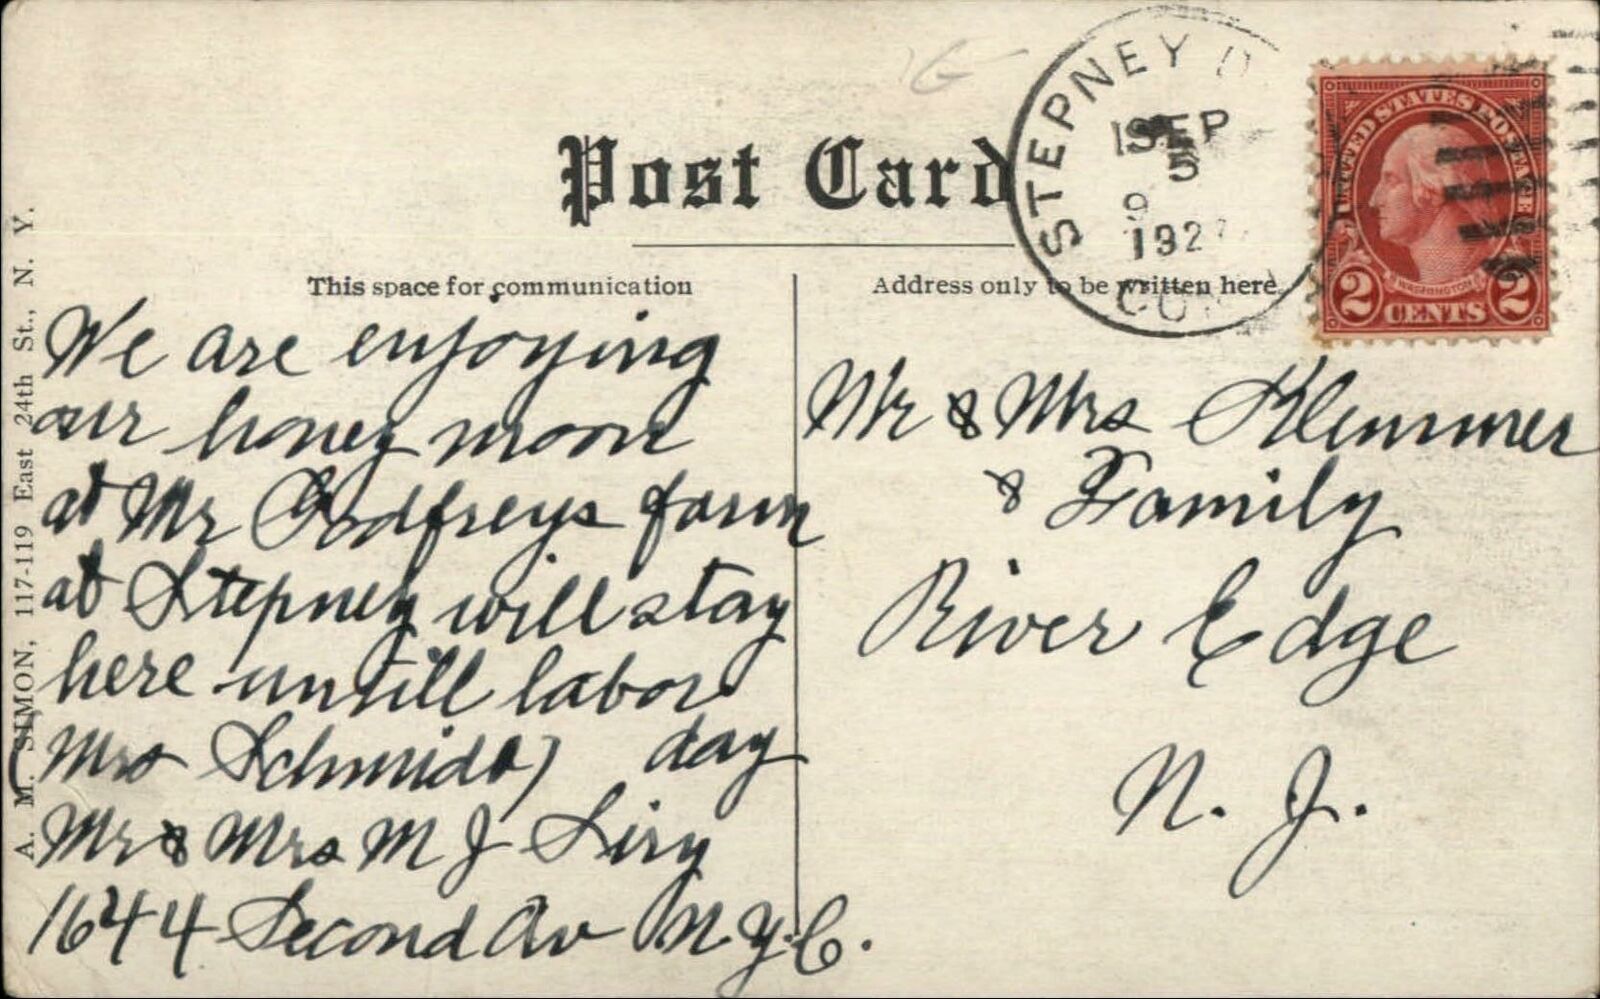 Post Card
This space for communication
Address only to be written here
STEPNEY D
SEP
5
9
192
CO
UNITED STATES POSTAGE
WASHINGTON
2 CENTS 2
A. M. SIMON, 117-119 East 24th St., N. Y.
We are enjoying
our honey moon
at Mr Godfreys farm
at Stepney will stay
here untill labor
day
(Mrs Schmidt)
Mr & Mrs M J
1644 Second Av N.Y.C.
Mr & Mrs Klemmer
& Family
River Edge
N. J.